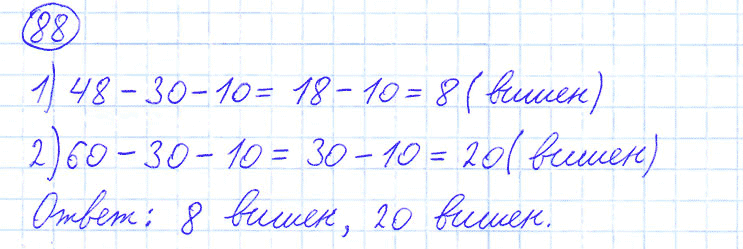 88
1) 48 - 30 - 10 = 18 - 10 = 8 (вишен)
2) 60 - 30 - 10 = 30 - 10 = 20 (вишен)
Ответ: 8 вишен, 20 вишен.